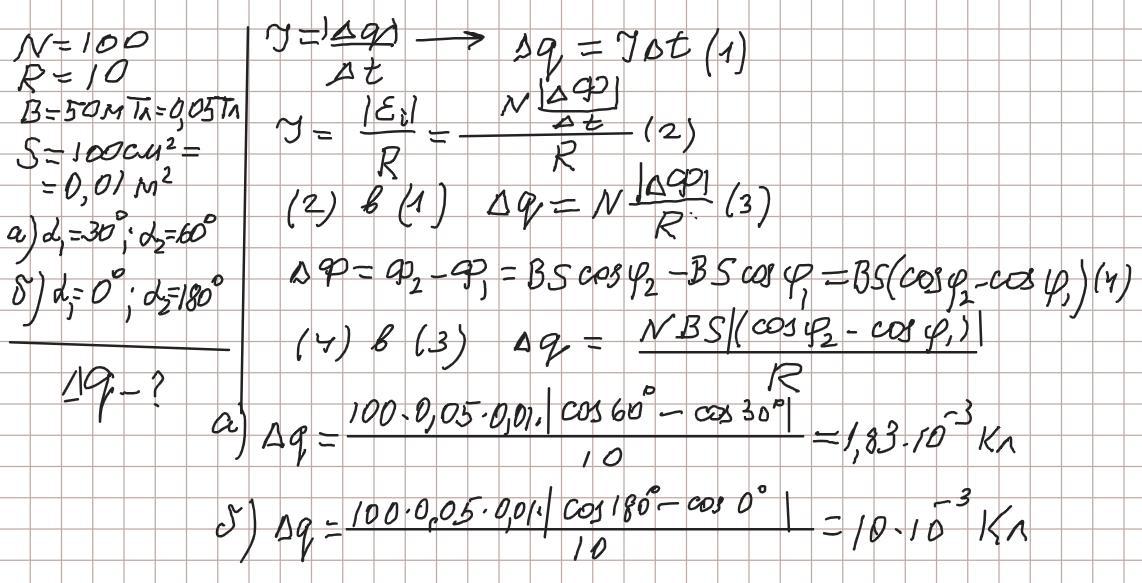 N=100
R=10
B=50мТл=0,05Тл
S=100см²=
=0,01м²
а) α₁=30°; α₂=60°
б) α₁=0°; α₂=180°
Δq-?
I=|Δq|/Δt → Δq=IΔt (1)
I=|Ɛi|/R=N|ΔΦ|/Δt/R (2)
(2) в (1) Δq=N|ΔΦ|/R (3)
ΔΦ=Φ₂-Φ₁=BScosφ₂-BScosφ₁=BS(cosφ₂-cosφ₁)(4)
(4) в (3) Δq=NBS|(cosφ₂-cosφ₁)|/R
а) Δq=100·0,05·0,01·|cos60°-cos30°|/10=1,83·10⁻³Кл
б) Δq=100·0,05·0,01·|cos180°-cos0°|/10=10·10⁻³Кл